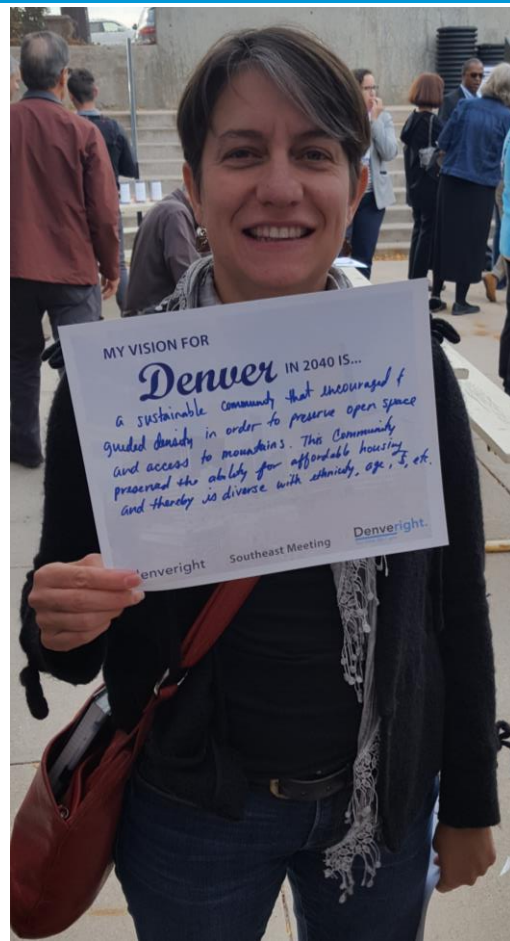 MY VISION FOR
Denver IN 2040 IS...
a sustainable community that encouraged &
guided density in order to preserve open space
and access to mountains. This community
preserved the ability for affordable housing
and thereby is diverse with ethnicity, age, $, etc.
enveright Southeast Meeting Denveright.